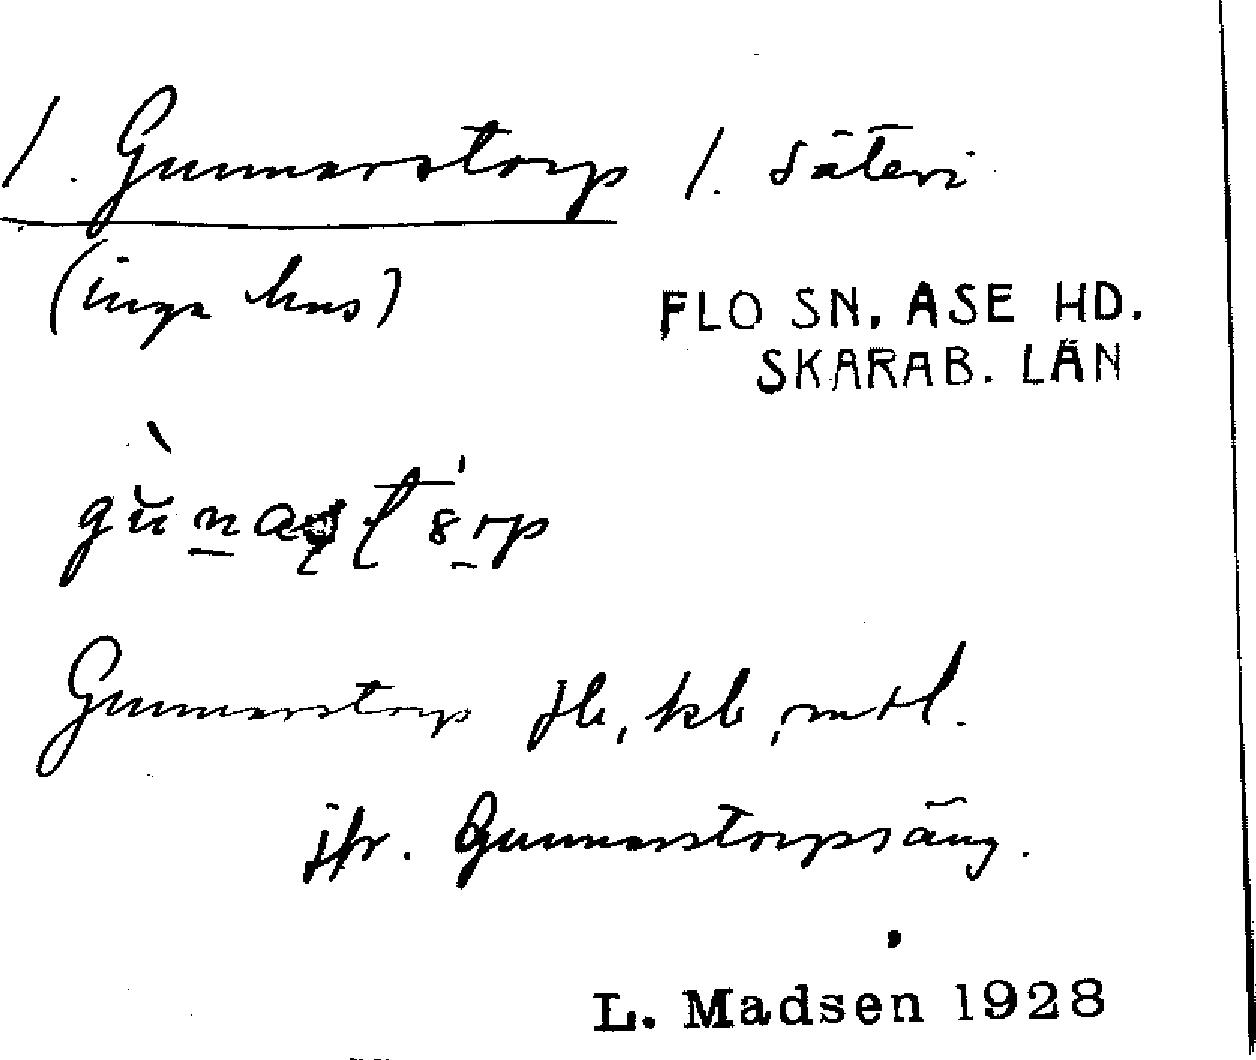 1. Gunnarstorp 1. säteri
(inga hus)
FLO SN. ASE HD.
SKARAB. LÄN
Gunnarstorp jb, kb,
jfr. Gunnarstorpsäng.
L. Madsen 1928